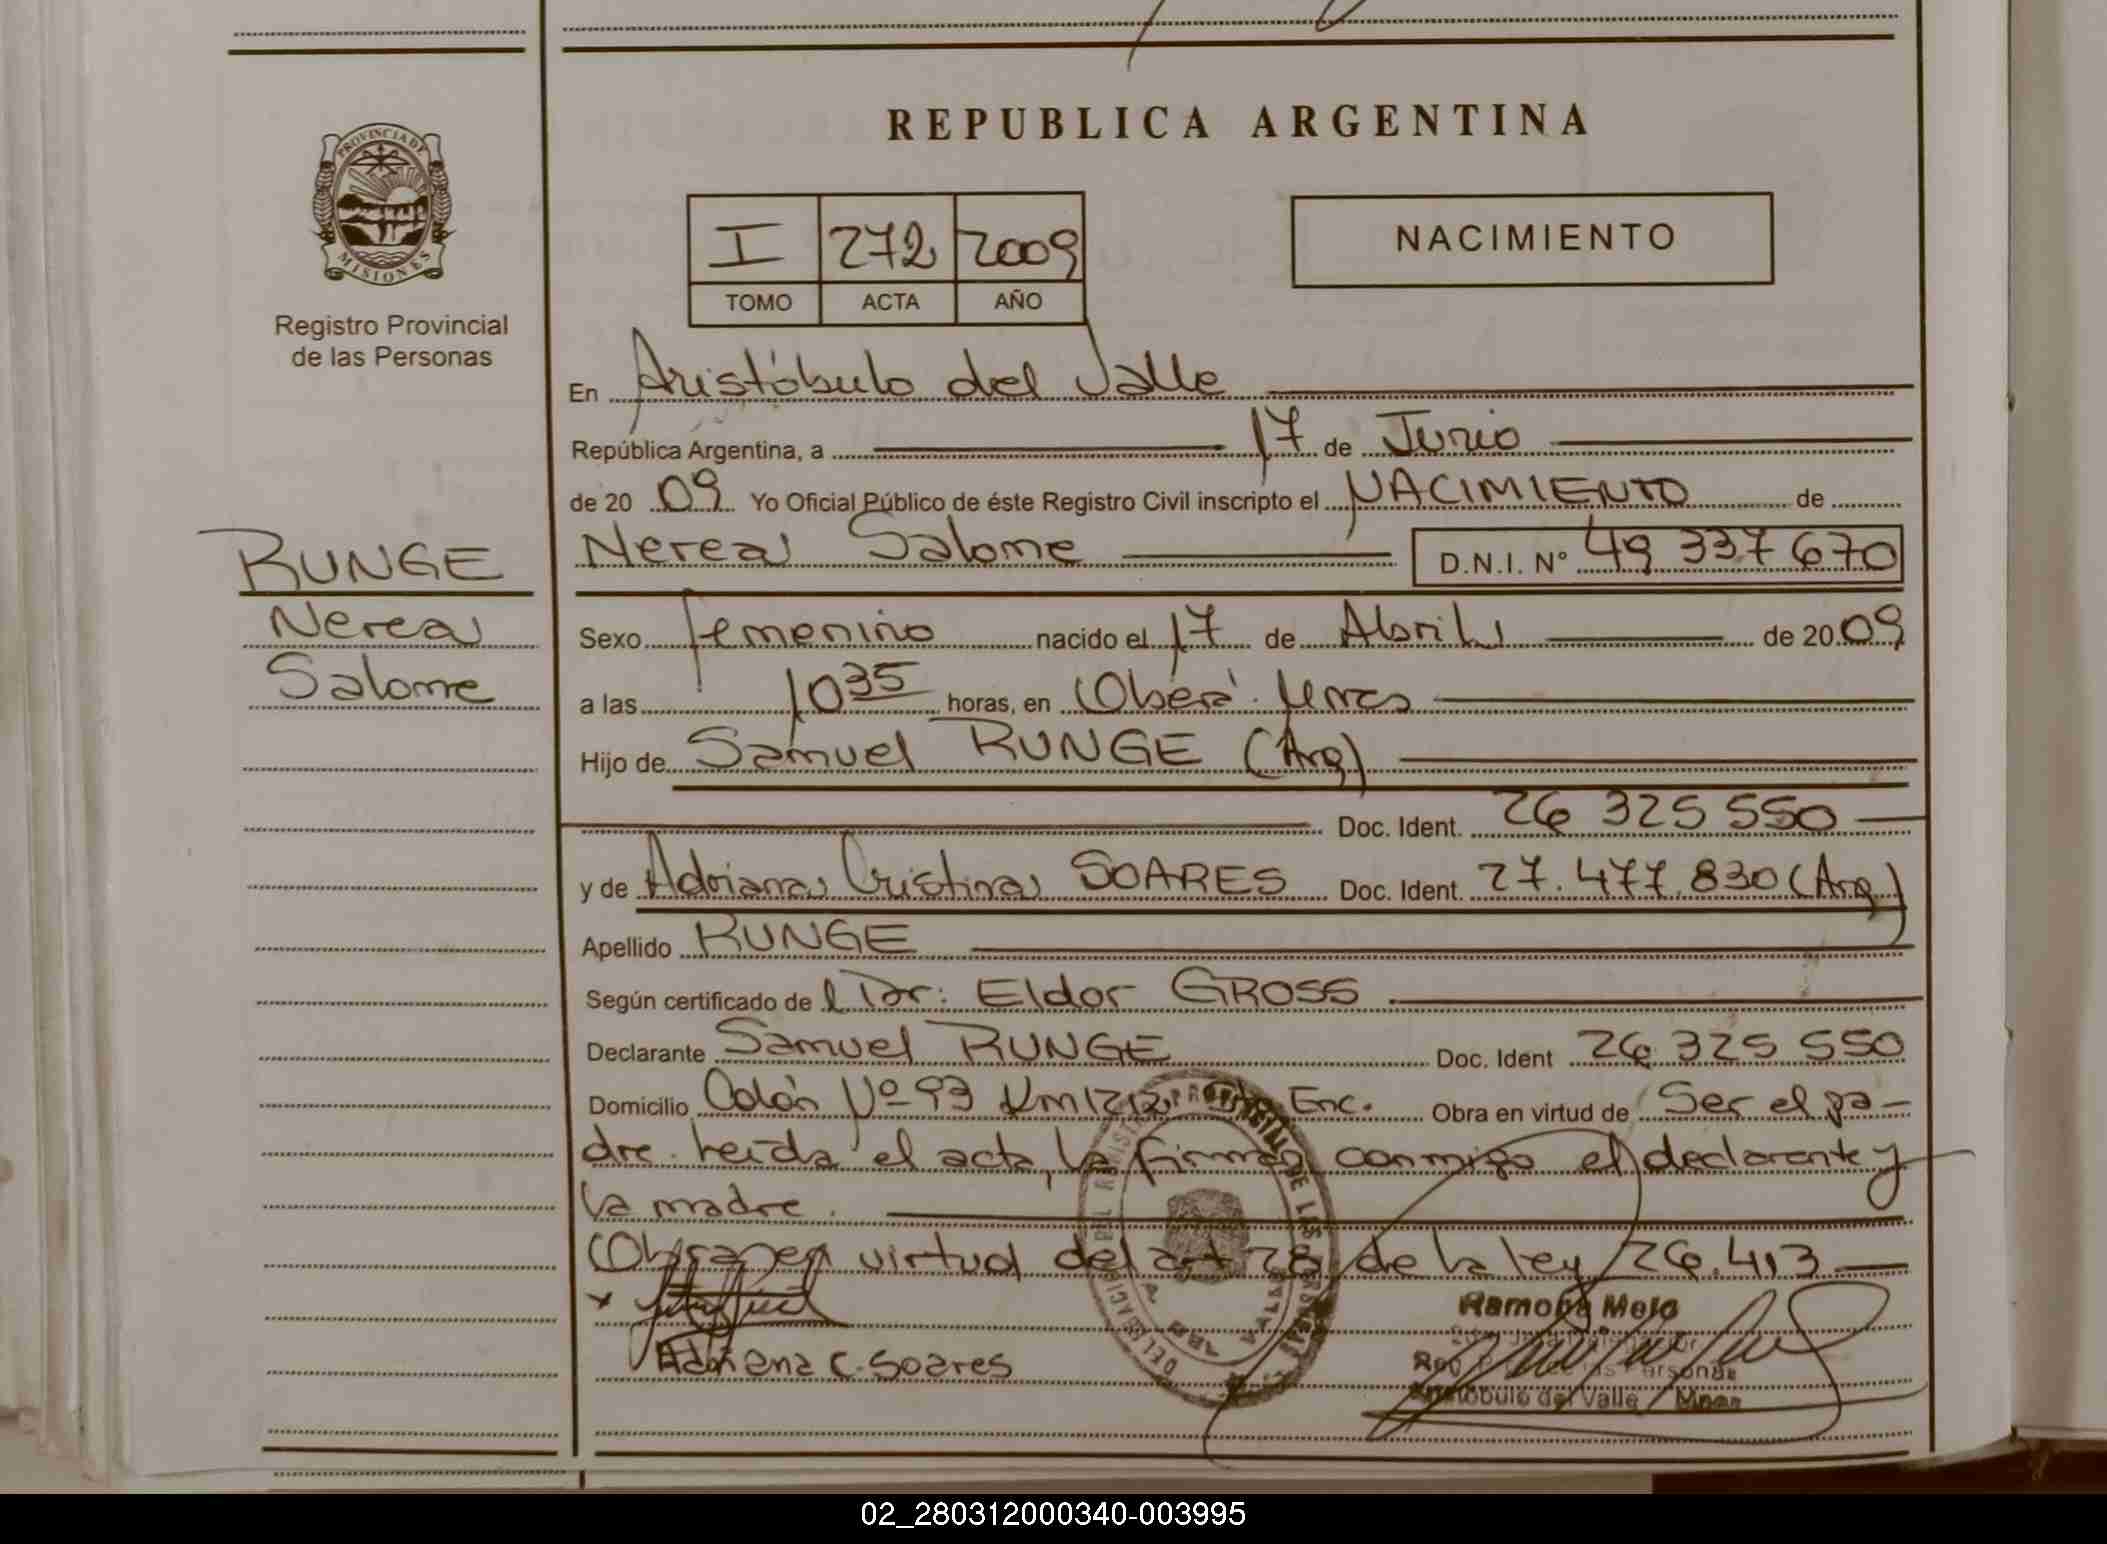 REPUBLICA ARGENTINA
PROVINCIA DE
MISIONES
Registro Provincial
de las Personas
I 272 2009
TOMO ACTA AÑO
NACIMIENTO
En Aristóbulo del Valle
República Argentina, a 17 de Junio
de 2009 Yo Oficial Público de éste Registro Civil inscripto el NACIMIENTO de
RUNGE
Nerea
Salome
Nerea Salome D.N.I. Nº 49 337 670
Sexo femenino nacido el 17 de Abril de 2009
a las 10 35 horas, en Oberá
Hijo de Samuel RUNGE (Arg)
Doc. Ident. 26 325 550
y de Adriana Cristina SOARES Doc. Ident. 27.477.830 (Arg)
Apellido RUNGE
Según certificado de l Dr: Eldor GROSS
Declarante Samuel RUNGE Doc. Ident 26 325 550
Domicilio Colón Nº 93 Km 1212 Enc. Obra en virtud de Ser el pa-
dre. Leída el acta, la firman conmigo el declarante y
la madre.
Obra en virtud del art 28 de la ley 26.413
Adriana C. Soares
Ramona Melo
Aristóbulo del Valle Mnes
02_280312000340-003995